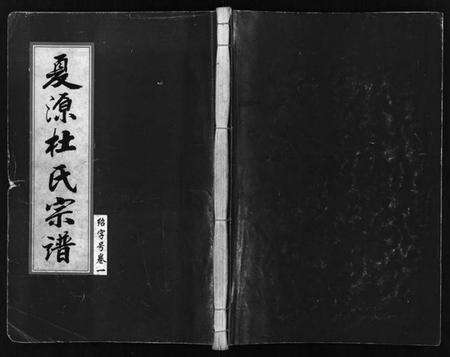 夏源杜氏宗谱
绍字号卷一